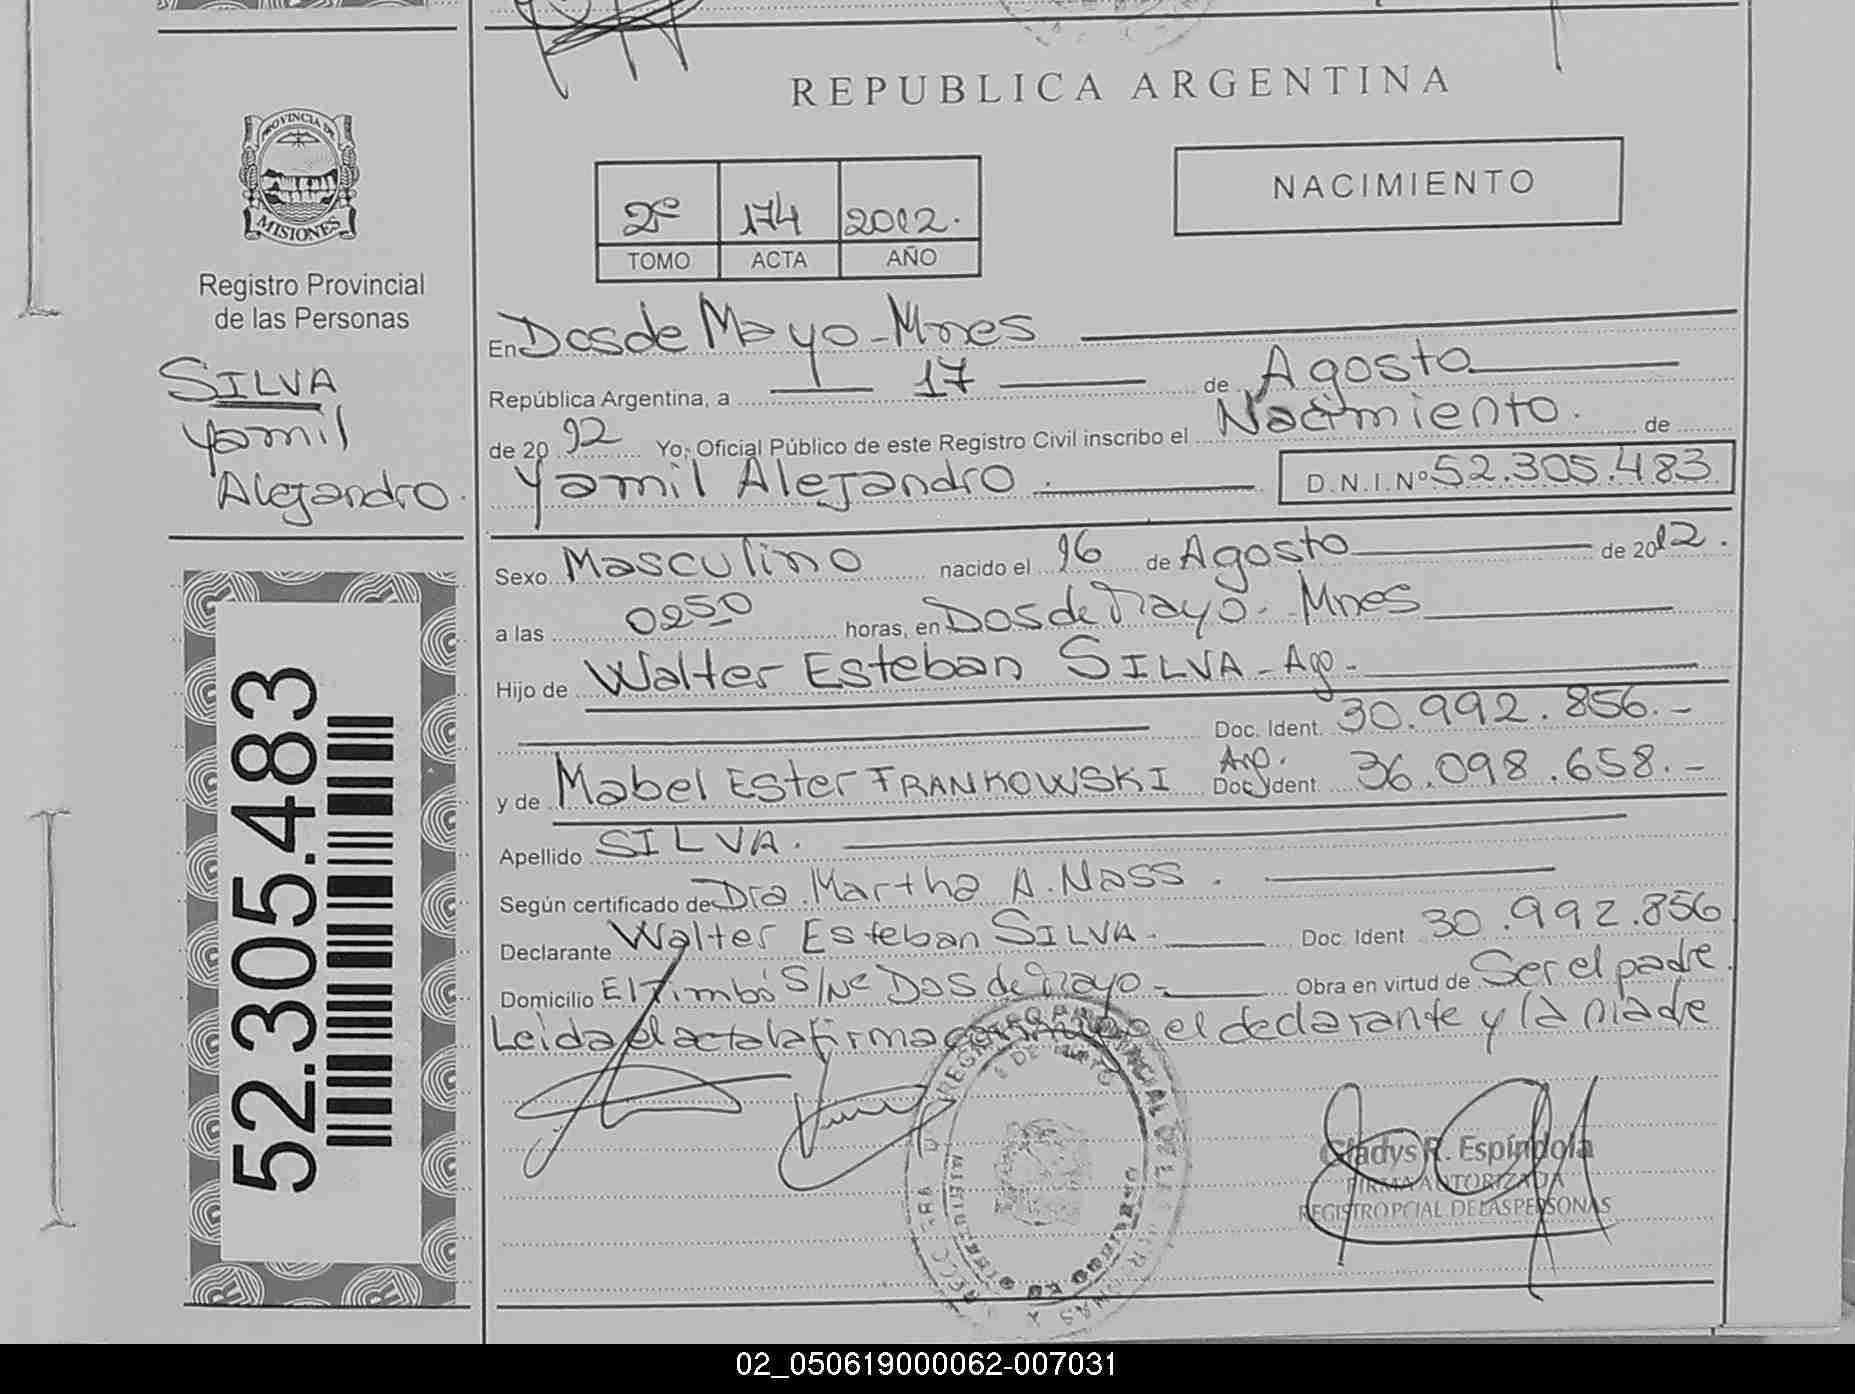 REPUBLICA ARGENTINA
NACIMIENTO
2º 174 2012.
TOMO ACTA AÑO
PROVINCIA DE
MISIONES
Registro Provincial
de las Personas
SILVA
Yamil
Alejandro.
52.305.483
En Dos de Mayo - Mnes
República Argentina, a 17 de Agosto
de 20 12 Yo, Oficial Público de este Registro Civil inscribo el Nacimiento. de
Yamil Alejandro. D.N.I.Nº 52.305.483
Sexo Masculino nacido el 16 de Agosto de 2012.
a las 0250 horas, en Dos de Mayo - Mnes
Hijo de Walter Esteban SILVA - Arg -
Doc. Ident. 30.992.856.-
y de Mabel Ester FRANKOWSKI Arg. Doc. Ident. 36.098.658.-
Apellido SILVA.
Según certificado de Dra. Martha A. Nass.
Declarante Walter Esteban SILVA. Doc. Ident 30.992.856
Domicilio El Timbó S/Nº Dos de Mayo - Obra en virtud de Ser el padre.
Leida el acta la firma conmigo el declarante y la madre
Gladys R. Espíndola
FIRMA AUTORIZADA
REGISTRO PCIAL DE LAS PERSONAS
02_050619000062-007031